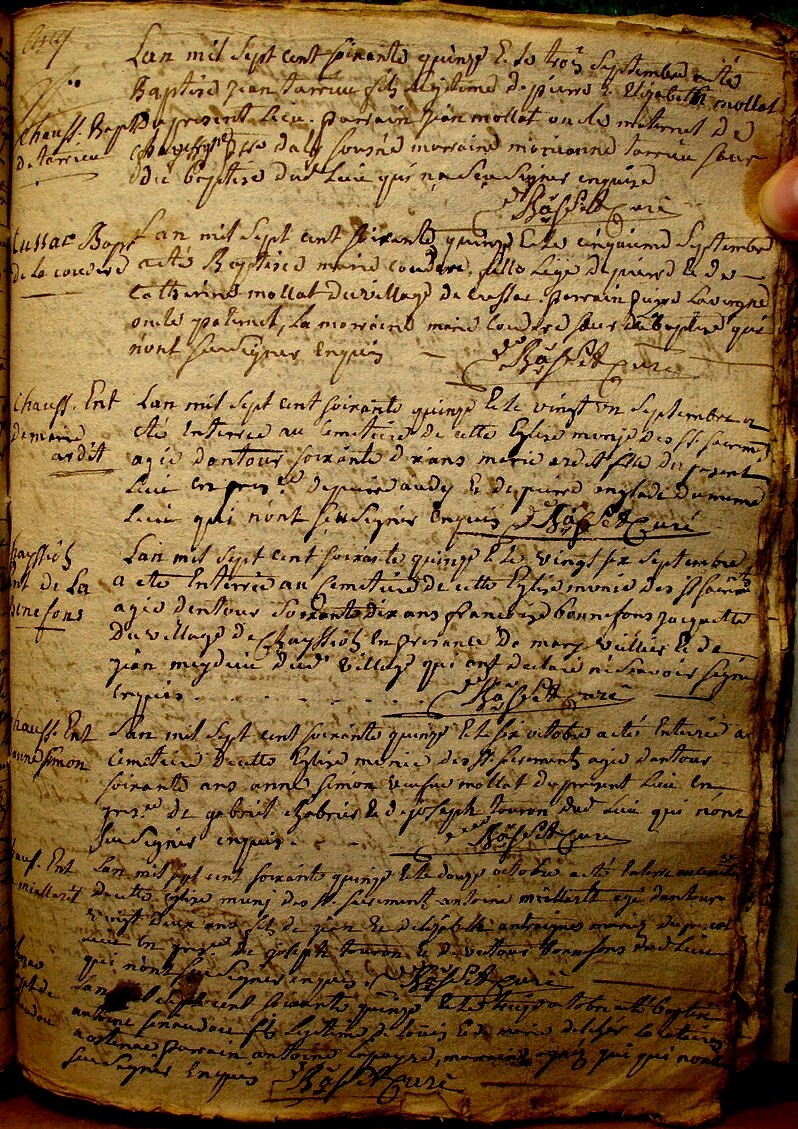 Lan mil sept cent soixante quinze et le trois Septembre a eté
Baptisé jean tarrieu fils legitime de pierre & Elizabeth mollat
Chauss. Bapt
de tarrieu
du present Lieu. parrain jean mollat oncle maternel de
marraine marianne tarrieu sœur
du Baptisé dud Lieu qui n'a sceu signer enquise
Rosset Curé
Cussac Bapt
de la coudere
Lan mil sept cent soixante quinze et le cinquieme Septembre
a eté Baptisée marie coudere fille Legе de pierre & de
Catherine mollat du village de Cussac. parrain pierre Lavergne
oncle paternel, La marraine marie coudere sœur du Baptisé qui
n'ont sceu signer Enquis
Rosset Curé
Chauss. Ent
de marie
ardit
Lan mil sept cent soixante quinze et le vingt un Septembre a
eté Enterrée au Cemetiere de cette Eglise munie des Sts sacremts
agée dentour soixante dix ans marie ardit fille du present
Lieu en presce de pierre audy & de pierre anglade du meme
Lieu qui n'ont sceu signer Enquis Rosset Curé
Chayssiol
Ent de La
Benefons
Lan mil sept cent soixante quinze et le vingt six Septembre
a eté Enterrée au Cemetiere de cette Eglise munie des Sts sacremts
agée dentour Soixante dix ans francoise bonnefons jacquette
Du village de Chayssiol En presance de marq vullier & de
jean meydieu dud village qui ont declaré ne scavoir signer
Enquis
Rosset Curé
Chauss. Ent
anne simon
Lan mil sept cent soixante quinze et le six octobre a eté Enterrée au
Cemetiere de cette Eglise munie des Sts sacrements agée dentour
soixante ans anne simon veufve mollat du present Lieu en
presce de gabriel chabrier & de joseph touron dud Lieu qui n'ont
sceu signer enquis.
Rosset Curé
Chauss. Ent
miallarit
Lan mil sept cent soixante quinze et le douze octobre a eté Enterré au cemetiere
de cette Eglise muni des Sts sacrements antoine miallarit agé dentour
vingt deux ans fils de jean & delizabeth antraigues mariés du present
Lieu En presce de joseph touron & de victour bonnefons dud Lieu
qui n'ont sceu signer enquis Rosset Curé
Lan mil sept cent soixante quinze et le treize octobre a eté baptisé
antoine senaudou fils Legitime de Louis & de marie delcher
parrain antoine Lapayre, marraine agnes qui n'ont
sceu signer Enquis Rosset Curé